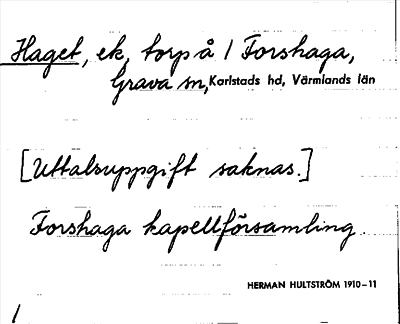 Haget, ek, torp å 1 Forshaga,
Grava sn, Karlstads hd, Värmlands län
[Uttalsuppgift saknas.]
Forshaga kapellförsamling.
HERMAN HULTSTRÖM 1910–11